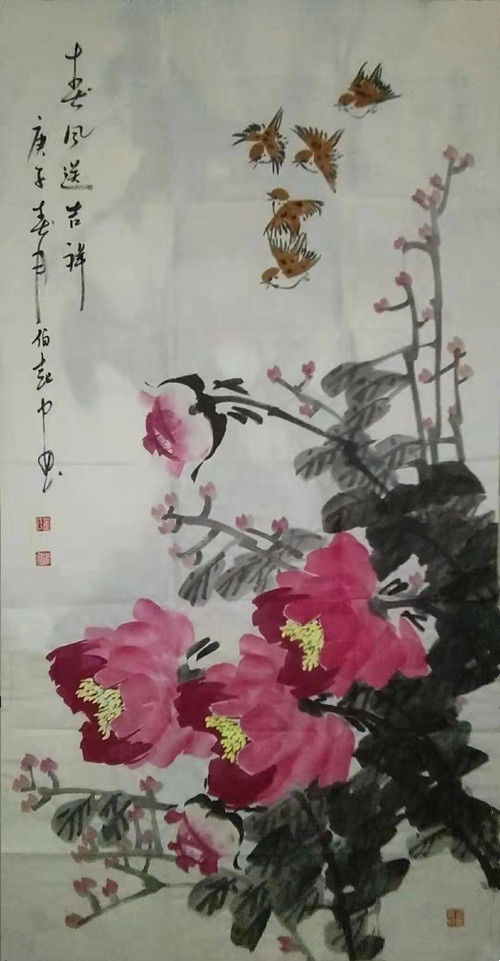 春风送吉祥
庚子春月伯起中